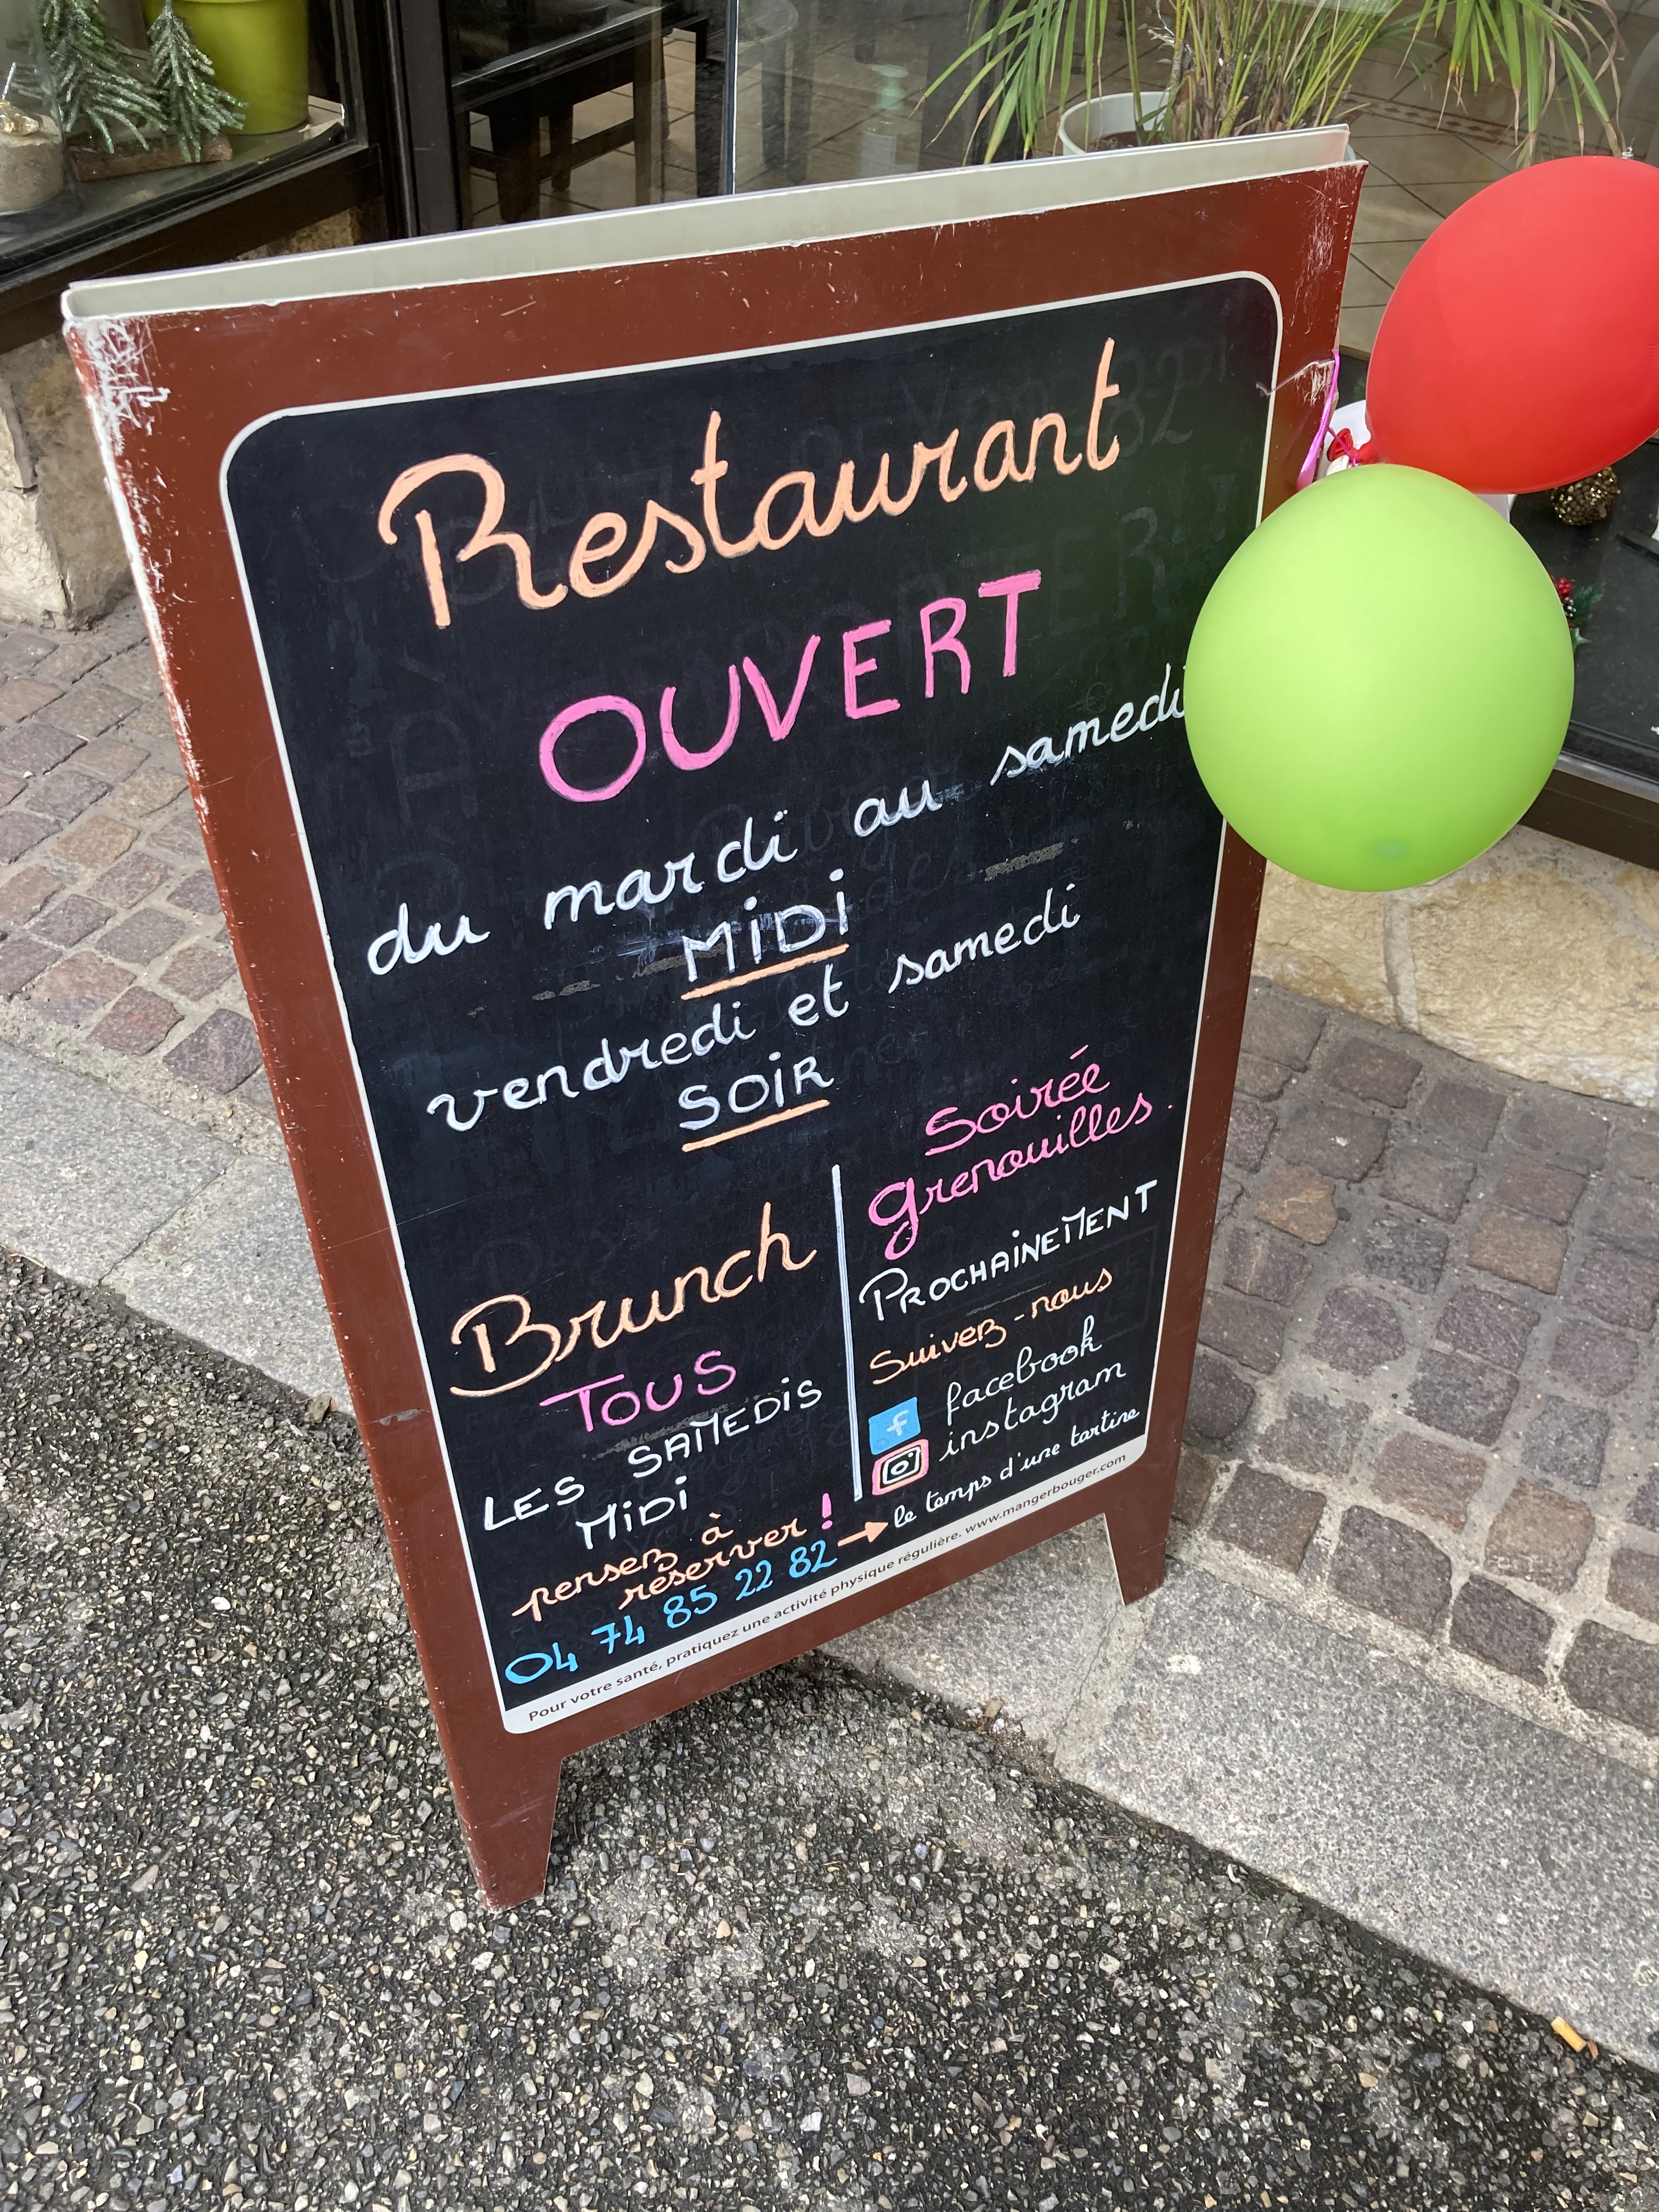 Restaurant
OUVERT
du mardi au samedi
MiDi
vendredi et samedi
SOiR
Brunch
TOUS
LES SAMEDIS
MiDi
pensez à
réserver !
04 74 85 22 82
Soirée
grenouilles.
PROCHAiNEMENT
Suivez-nous
f facebook
instagram
→ le temps d'une tartine
Pour votre santé, pratiquez une activité physique régulière. www.mangerbouger.com